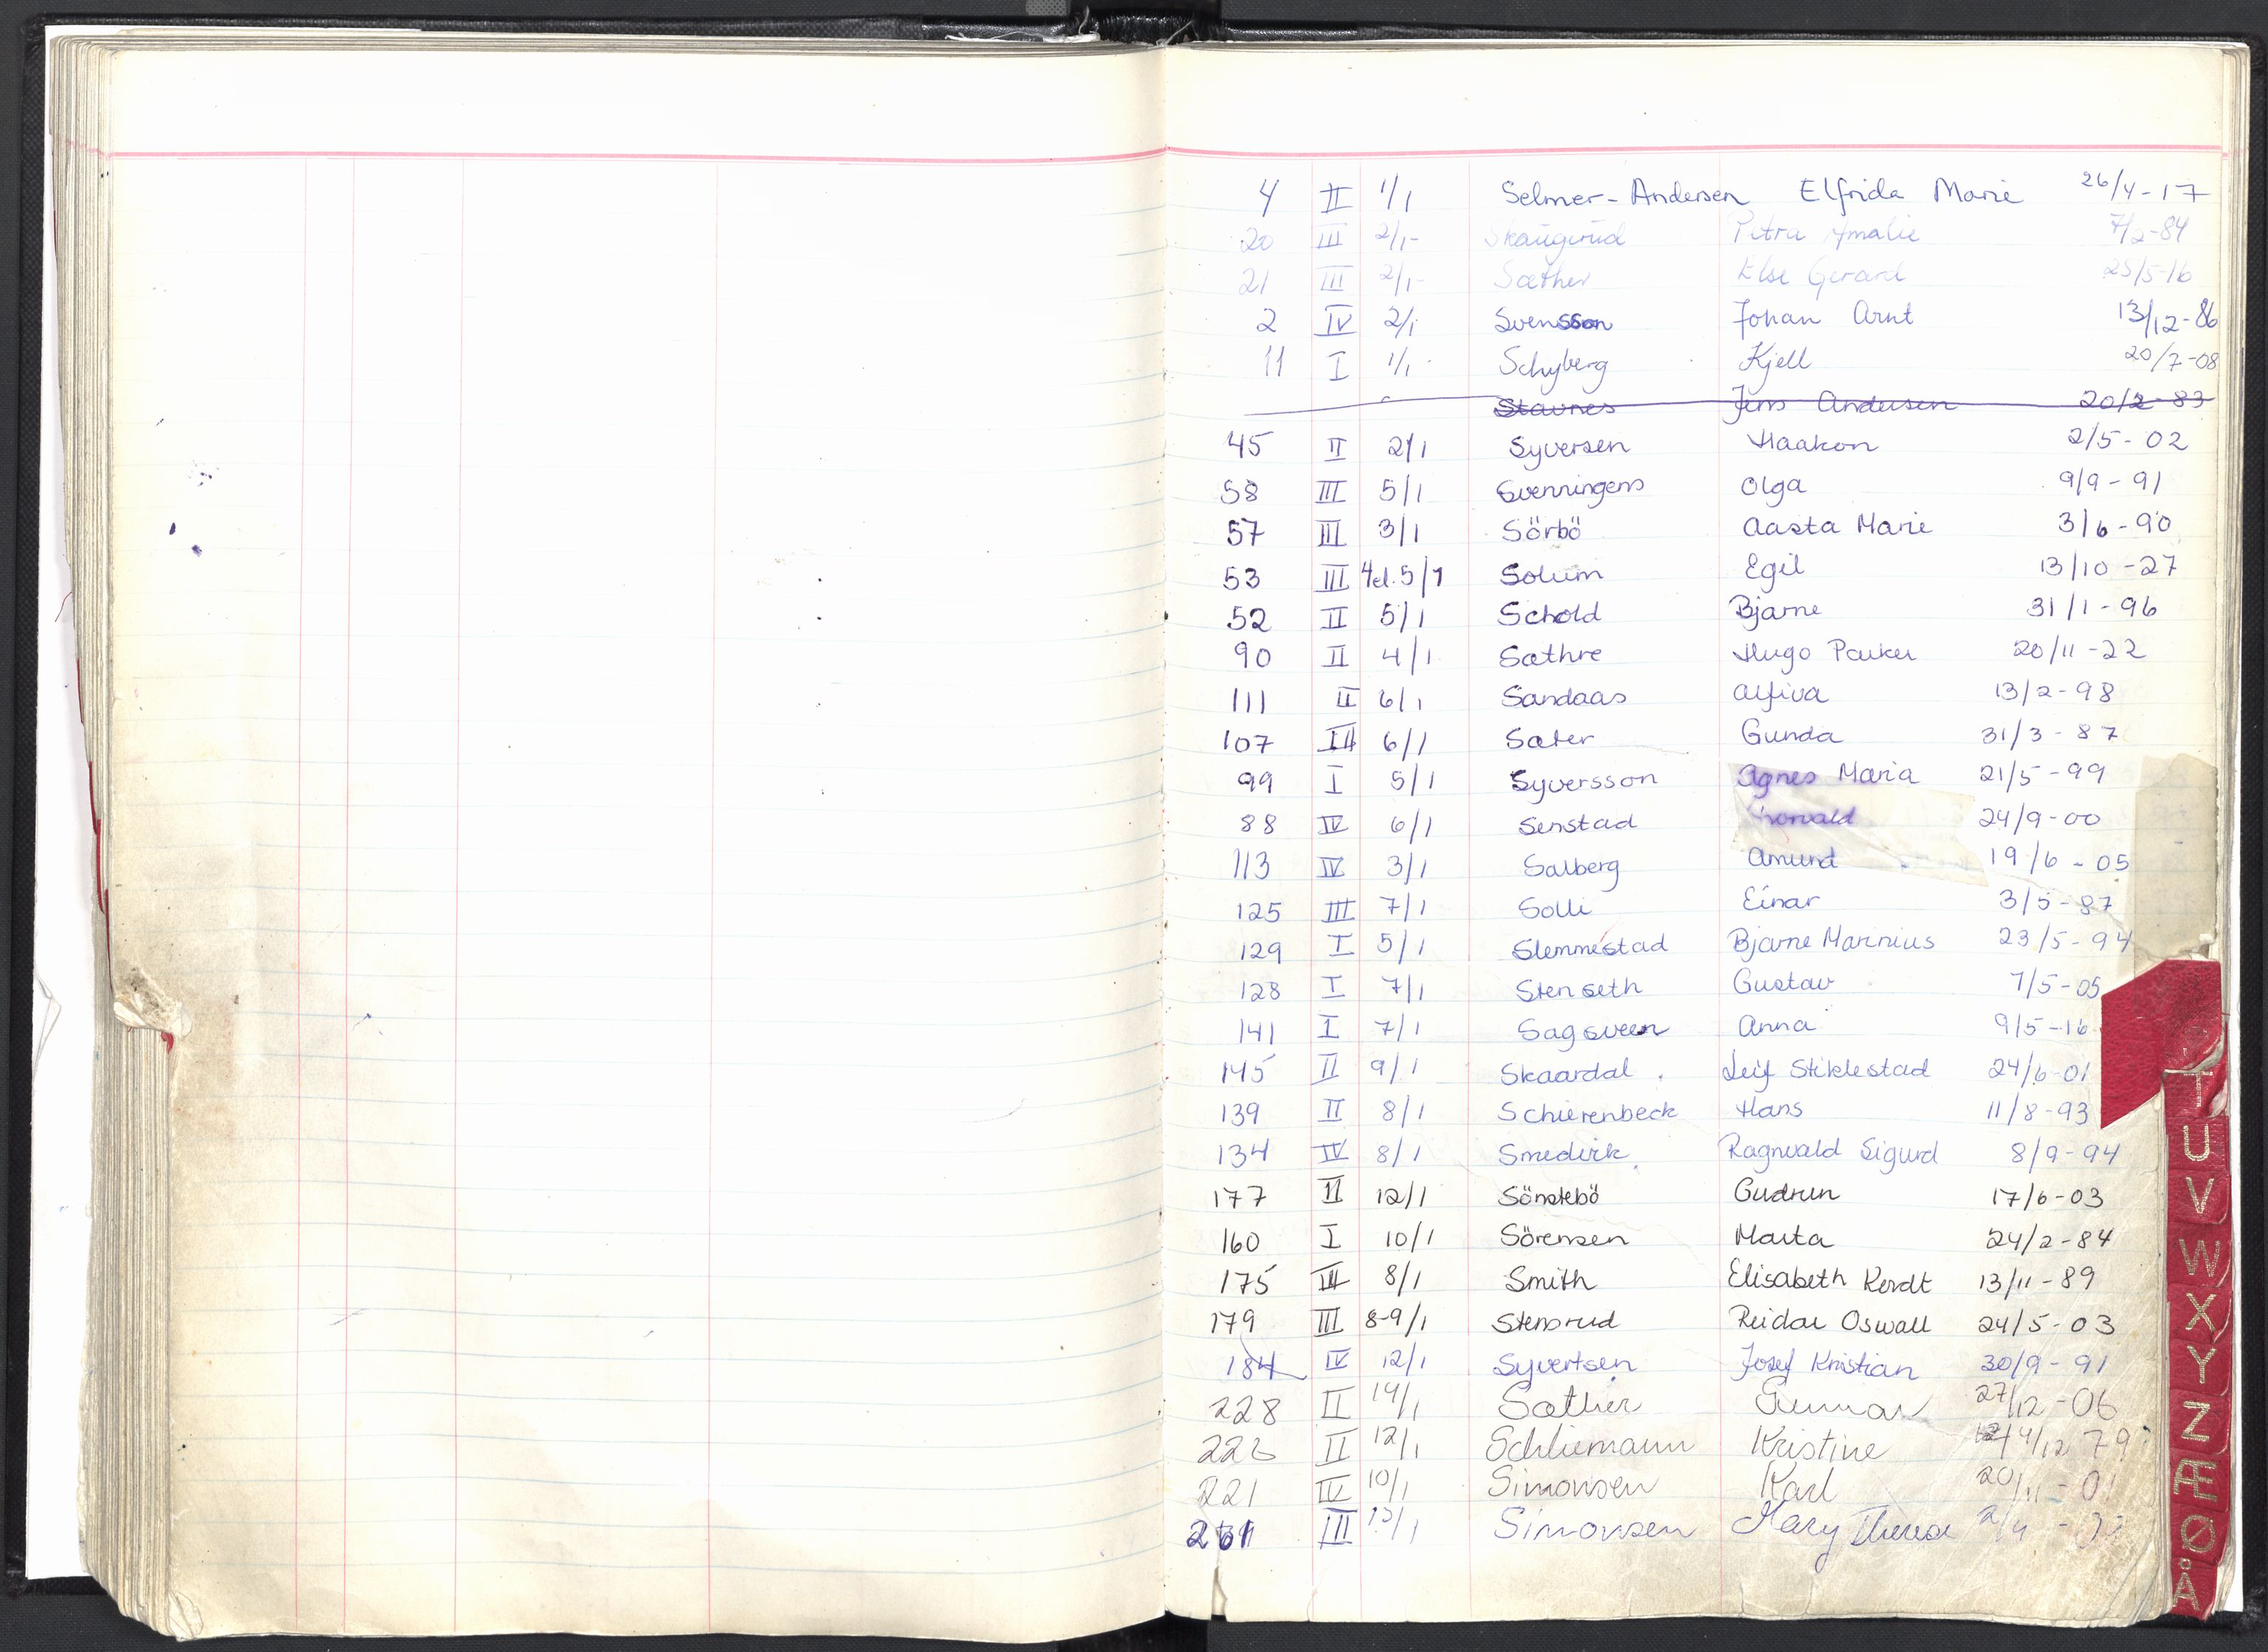 4 II 1/1 Selmer-Andersen Elfrida Marie 26/4-17
20 III 2/1- Skaugerud Petra Amalie 7/2-84
21 III 2/1- Sæther Else Gerard 25/5-16
2 IV 2/1 Svensson Johan Arnt 13/12-86
11 I 1/1 Schyberg Kjell 20/7-08
Stavnes Jens Andersen 20/2-83
45 II 2/1 Syversen Haakon 2/5-02
58 III 5/1 Svenningens Olga 9/9-91
57 III 3/1 Sörbö Aasta Marie 3/6-90
53 III 4el.5/1 Solum Egil 13/10-27
52 II 5/1 Schold Bjarne 31/1-96
90 II 4/1 Sæthre Hugo Parker 20/11-22
111 II 6/1 Sandaas Alfiva 13/2-98
107 III 6/1 Sæter Gunda 31/3-87
99 I 5/1 Syversson Agnes Maria 21/5-99
88 IV 6/1 Senstad Thorvald 24/9-00
113 IV 3/1 Salberg Amund 19/6-05
125 III 7/1 Solli Einar 3/5-87
129 I 5/1 Slemmestad Bjarne Marinius 23/5-94
128 I 7/1 Stenseth Gustav 7/5-05
141 I 7/1 Sagsveen Anna 9/5-16
145 II 9/1 Skaardal Leif Stiklestad 24/6-01
139 II 8/1 Schierenbeck Hans 11/8-93
134 IV 8/1 Smedvik Ragnvald Sigurd 8/9-94
177 II 12/1 Sönstebö Gudrun 17/6-03
160 I 10/1 Sörensen Marta 24/2-84
175 III 8/1 Smith Elisabeth Kerdt 13/11-89
179 III 8-9/1 Stensrud Reidar Oswall 24/5-03
184 IV 12/1 Syvertsen Josef Kristian 30/9-91
228 II 14/1 Sæther Gunnar 27/12-06
II 12/1 Schliemann Kristine 4/12 79
221 IV 10/1 Simonsen Karl 20/11-01
III 13/1 Simonsen Mary Therese 2/4
T
U
V
W
X
Y
Z
Æ
Ø
Å